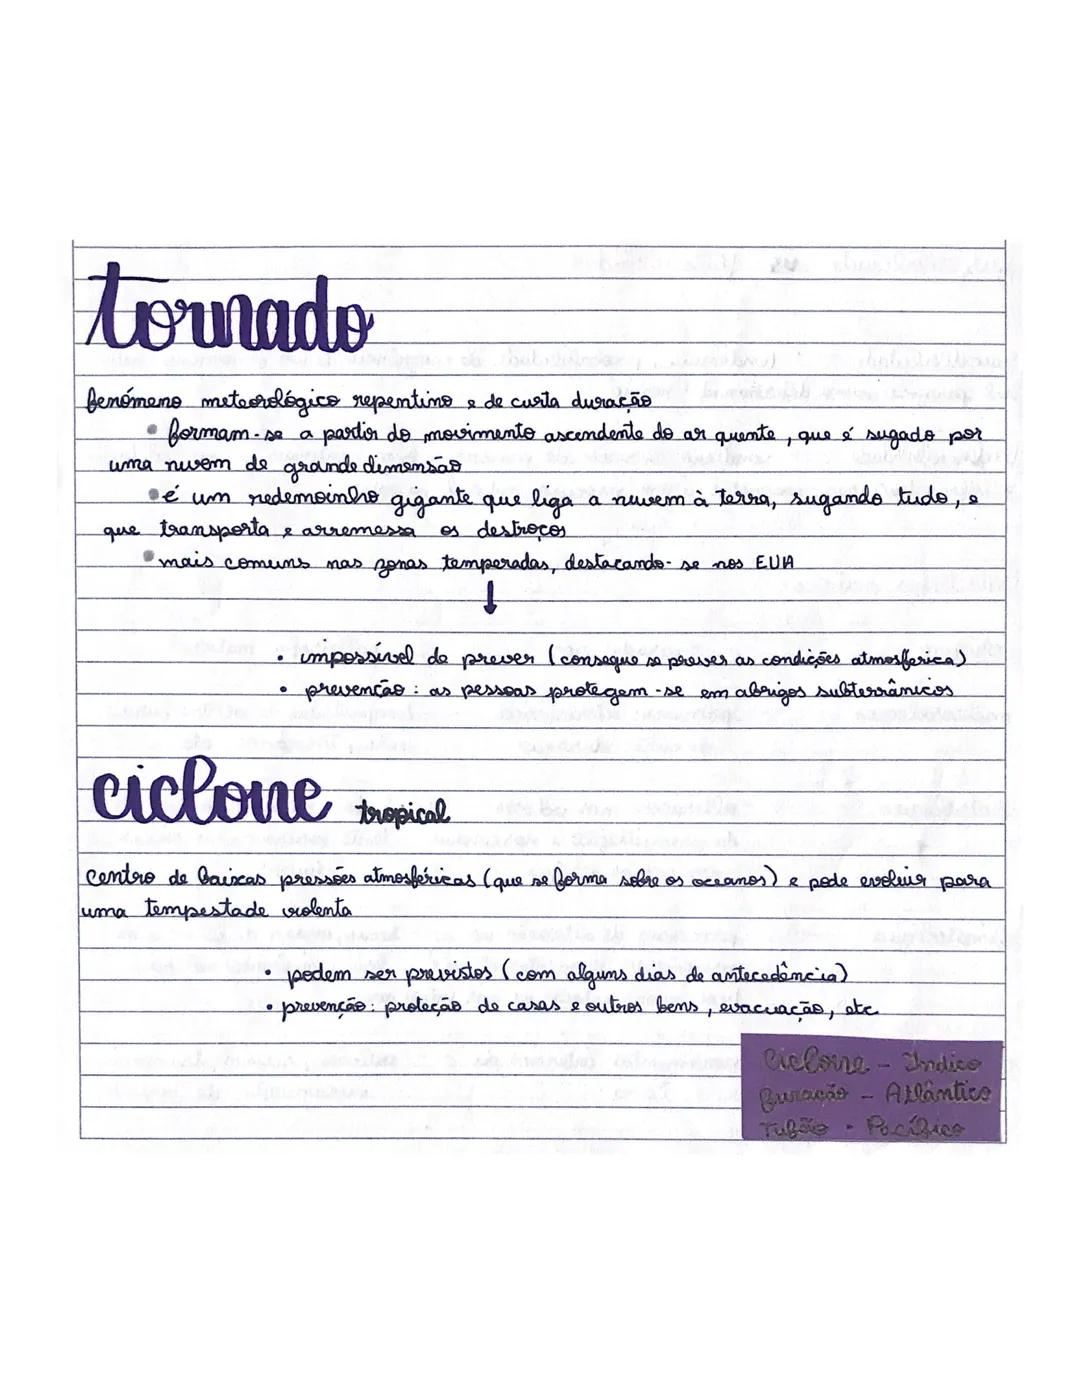 tornado
fenómeno meteorológico repentino e de curta duração
• formam-se a partir do movimento ascendente do ar quente, que é sugado por
uma nuvem de grande dimensão
• é um redemoinho gigante que liga a nuvem à terra, sugando tudo, e
que transporta e arremessa os destroços
• mais comuns nas zonas temperadas, destacando-se nos EUA
↓
• impossível de prever (consegue se prever as condições atmosferica)
• prevenção: as pessoas protegem-se em abrigos subterrânicos
ciclone tropical
centro de baixas pressões atmosféricas (que se forma sobre os oceanos) e pode evoluir para
uma tempestade violenta
• podem ser previstos (com alguns dias de antecedência)
• prevenção: proteção de casas e outros bens, evacuação, etc
Ciclone - Indico
Furacão - Atlântico
Tufão - Pacífico